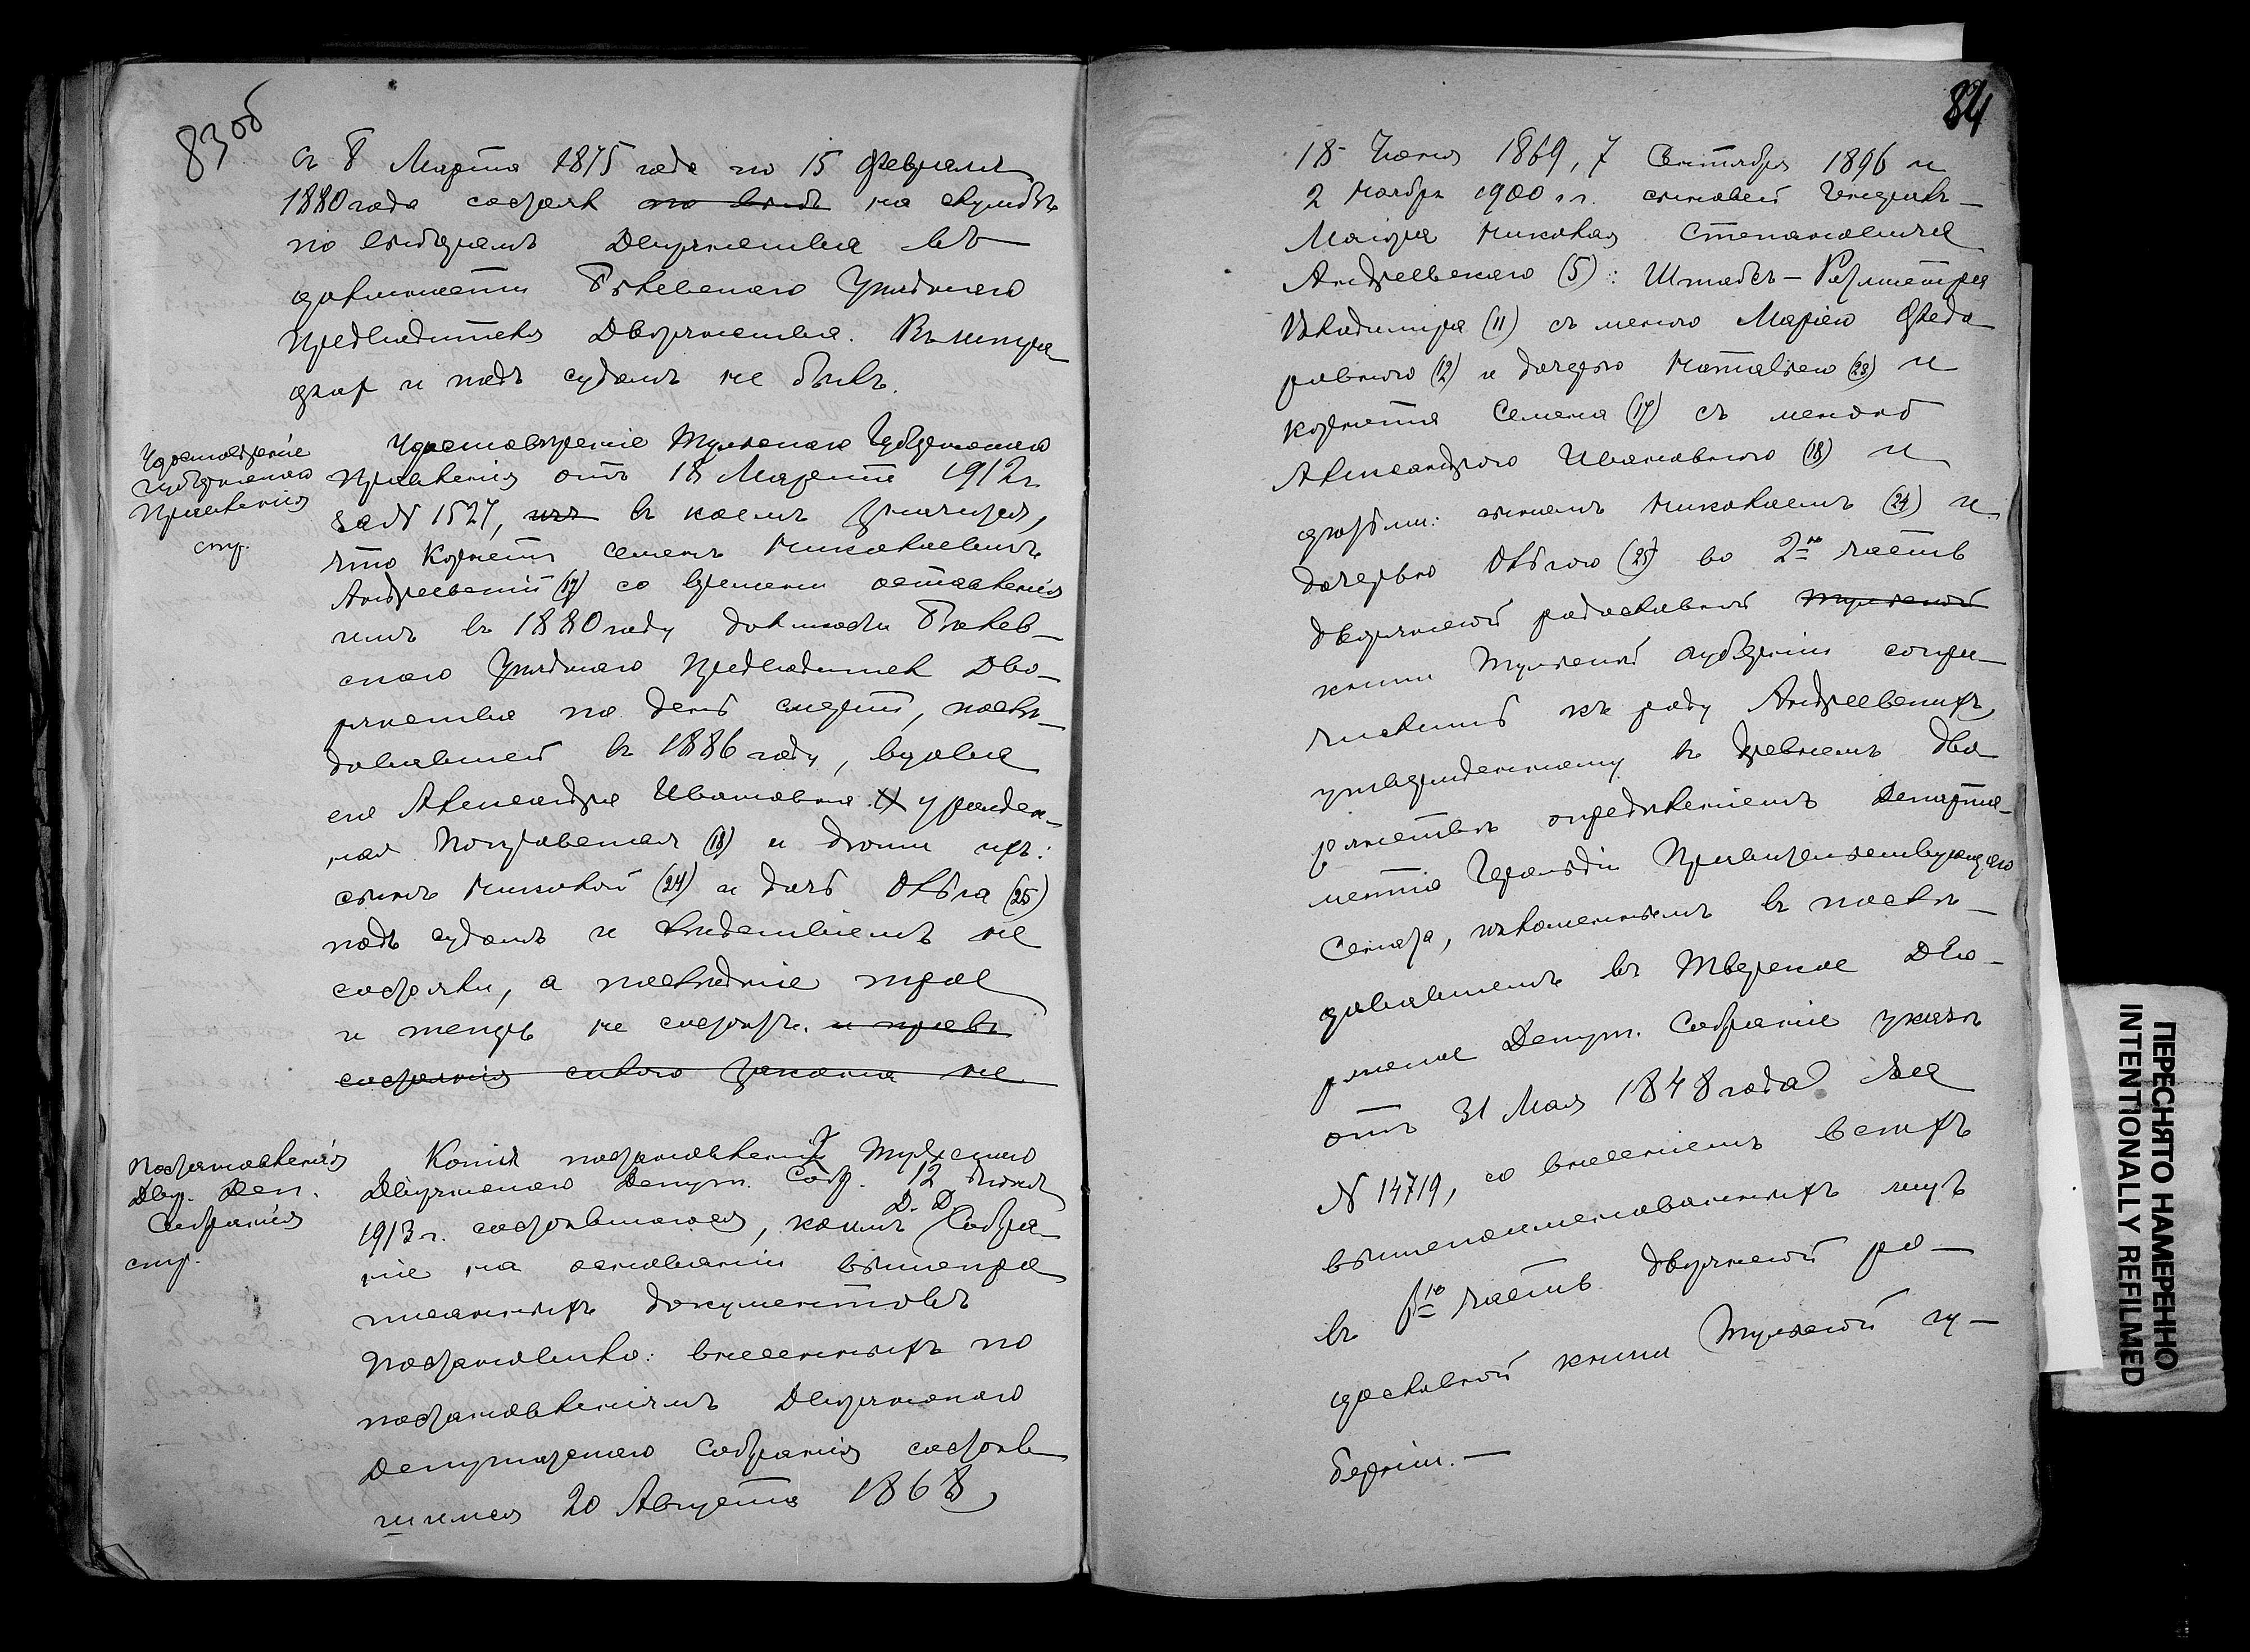 83 об
съ 8 Марта 1875 года по 15 Февраля
1880 года состоялъ на службѣ
по выборамъ Дворянства въ
должности Бѣлевскаго Уѣзднаго
Предводителя Дворянства. Въ штра
фах и подъ судомъ не былъ.
Удостовѣреніе
Губернскаго
Правленія
стр.
Удостовѣреніе Тульскаго Губернскаго
Правленія отъ 18 Марта 1912 г.
за N 1527, изъ въ коемъ значится,
что Корнетъ Семенъ Николаевичъ
Андреевскій (17) со времени оставленія
имъ въ 1880 году должности Бѣлев-
скаго Уѣзднаго Предводителя Дво-
рянства по день смерти, послѣ-
довавшей въ 1886 году, вдова
его Александра Ивановна урожден-
ная (18) и дѣти ихъ:
сынъ Николай (24) и дочь Ольга (25)
подъ судомъ и слѣдствіемъ не
состояли, а послѣдніе трое
и теперь не состоятъ. и правъ
состоянія силою закона не
Постановленія
Двор. Деп.
Собранія
стр.
Копія постановленія Тульскаго
Дворянскаго Депут. Собр. 12 Іюня
1913 г. состоявшагося, коимъ Д. Д. Собра-
ніе на основаніи вышепро
писанныхъ документовъ
Постановило: внесенныхъ по
постановленіямъ Дворянскаго
Депутатскаго Собранія состояв
шимся 20 Августа 1868,
84
18 Іюня 1869, 7 Сентября 1896 и
2 Ноября 1900 г.г. сыновей Генералъ-
Маіора Николая Степановича
Андреевскаго (5): Штабсъ-Ротмистра
Владимира (11) съ женою Маріею Федо
ровною (12) и дочерью Наталіею (23) и
Корнета Семена (17) съ женой
Александрою Ивановною (18) и
дѣтьми: сыномъ Николаемъ (24) и
дочерью Ольгою (25) во 2ю часть
дворянской родословной Тульской
книги Тульской губерніи сопри-
числить къ роду Андреевскихъ,
утвержденному въ древнемъ дво
рянствѣ опредѣленіемъ Департа-
мента Герольдіи Правительствующаго
Сената, изложеннымъ въ послѣ-
довавшемъ въ Тверское Дво-
рянское Депут. Собраніе указѣ
отъ 31 Мая 1848 года за
N 14719, со внесеніемъ всѣхъ
вышепоименованныхъ лицъ
въ 6ю часть дворянской ро-
дословной книги Тульской гу-
берніи.—
ПЕРЕСНЯТО НАМЕРЕННО
INTENTIONALLY REFILMED